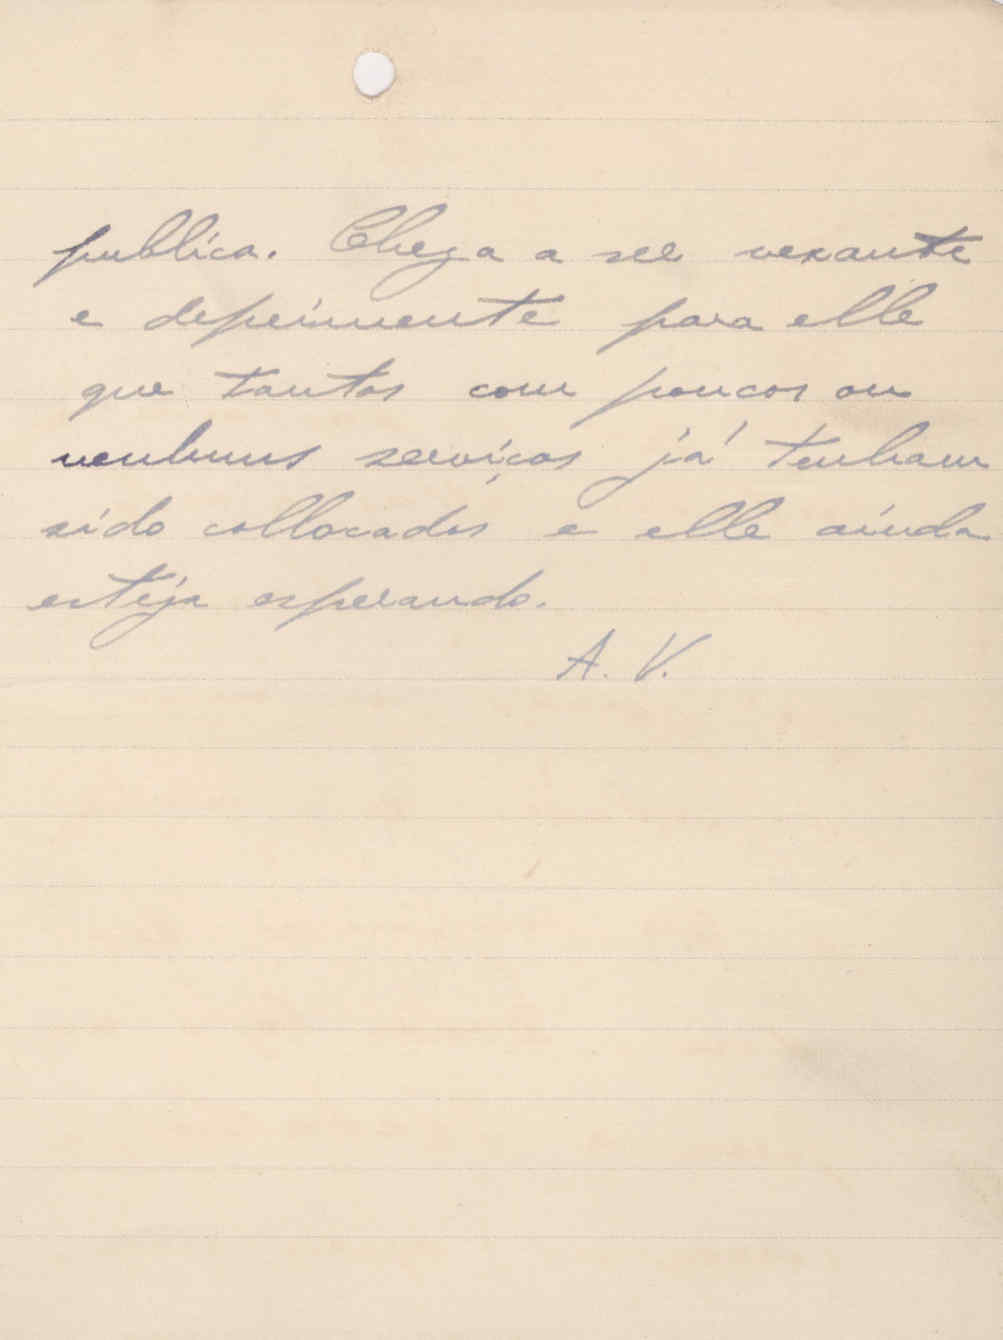 publica. Chega a ser vexante
e deprimente para elle
que tantos com poucos ou
nenhuns serviços já tenham
sido collocados e elle ainda
esteja esperando.
A. V.